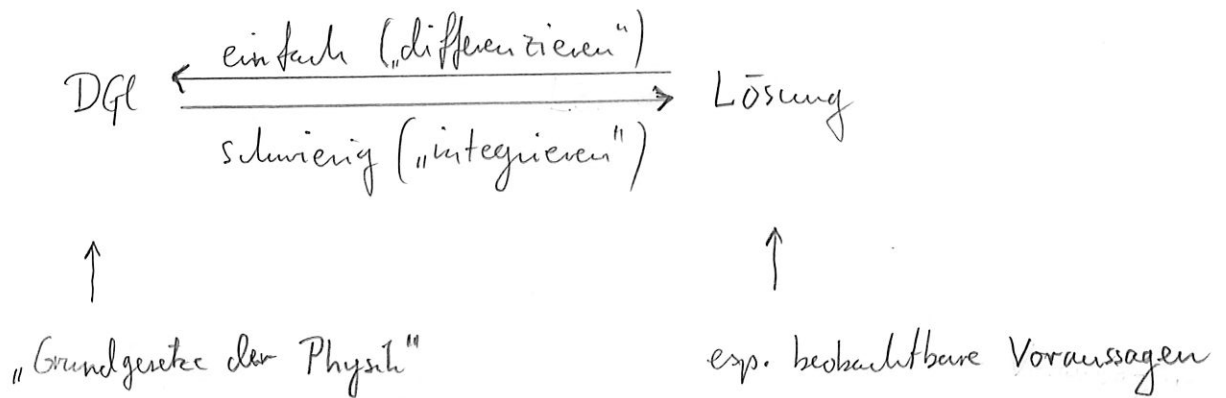 einfach („differenzieren“)
DGl Lösung
schwierig („integrieren“)
„Grundgesetze der Physik“ esp. beobachtbare Voraussagen